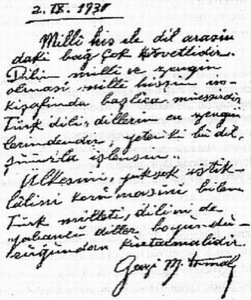 2.IX.1930
Milli his ile dil arasın
daki bağ çok kuvvetlidir.
Dilin milli ve zengin
olması milli hissin in-
kişafında başlıca müessirdir.
Türk dili, dillerin en zengin
lerindendir; yeter ki bu dil,
şuurla işlensin.
Ülkesini, yüksek istik-
lâlini korumasını bilen
Türk milleti, dilini de
yabancı diller boyundu-
ruğundan kurtarmalıdır.
Gazi M. Kemal